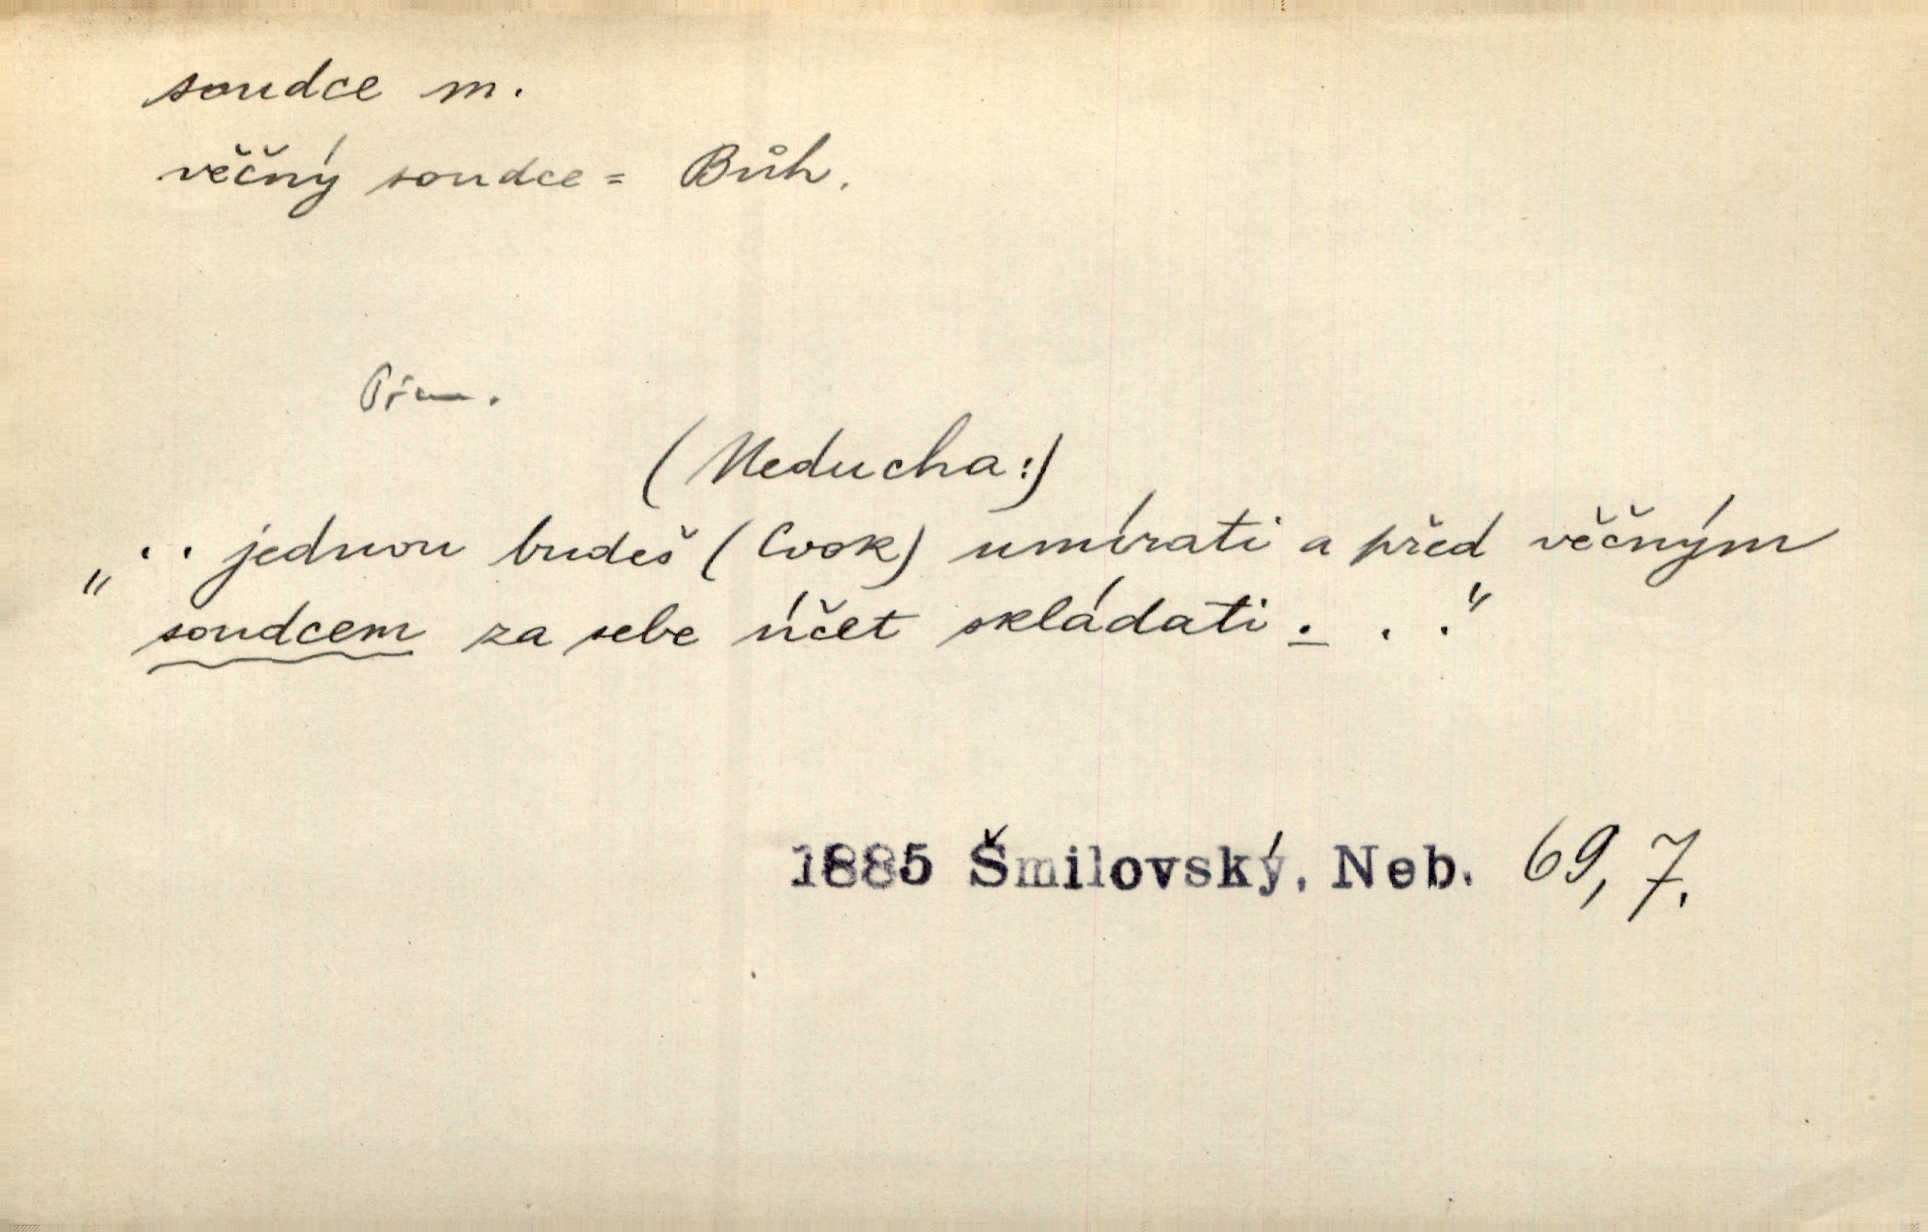 soudce m.
věčný soudce = Bůh.
(Neducha:)
„ . . jednou budeš (Cvok) umírati a před věčným
soudcem za sebe účet skládati . . .“
1885 Šmilovský, Neb. 69, 7.